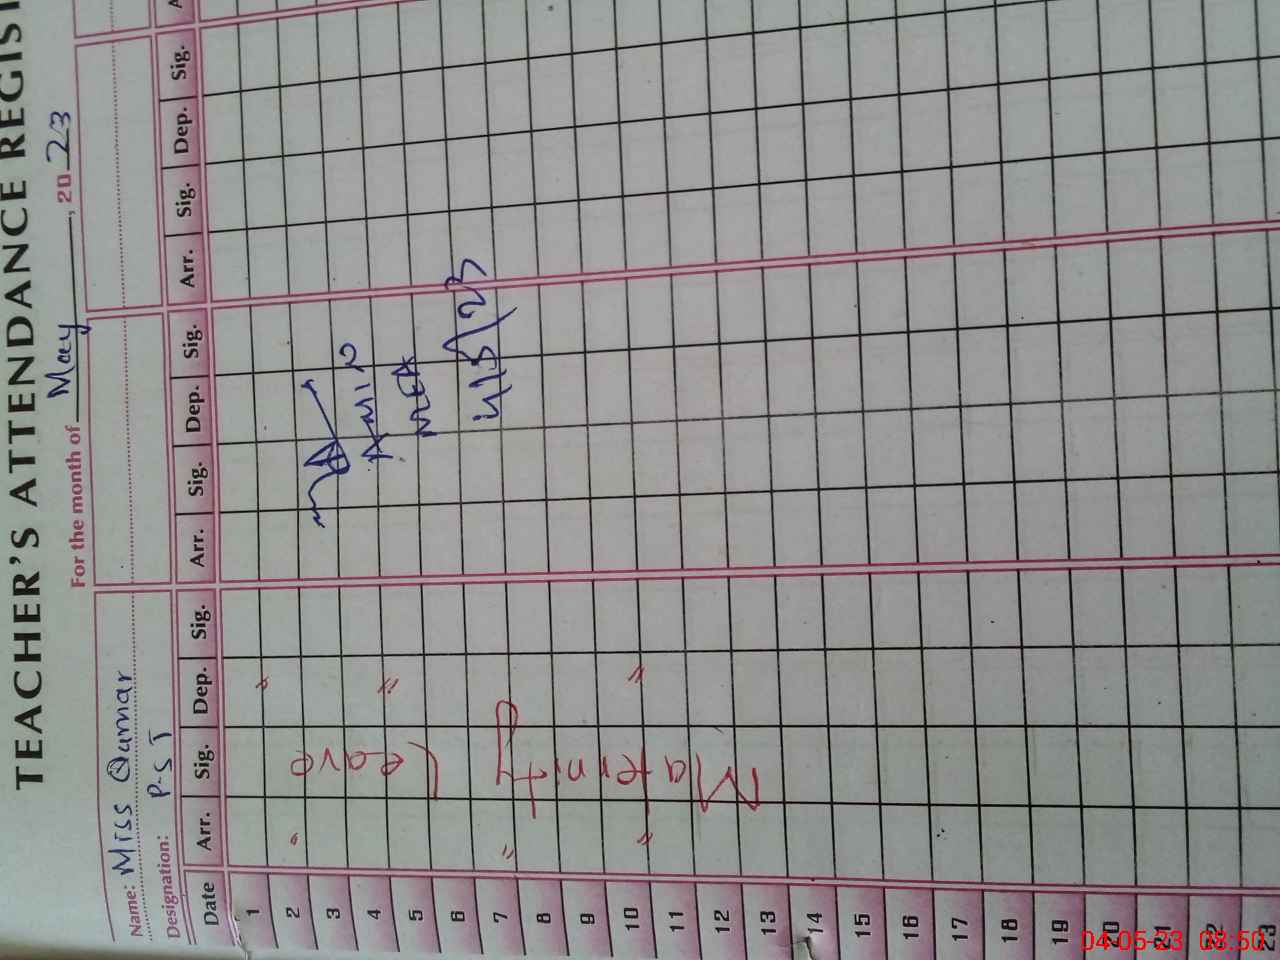 TEACHER'S ATTENDANCE REGIST
For the month of May, 2023
Name: Miss Qamar
Designation: P-S T
Date Arr. Sig. Dep. Sig. Arr. Sig. Dep. Sig. Arr. Sig. Dep. Sig. A
1
2
3
4
5
6
7
8
9
10
11
12
13
14
15
16
17
18
19
20
21
22
23
Maternity Leave
AMIN
MEA
4/5/23
04-05-23 08:50